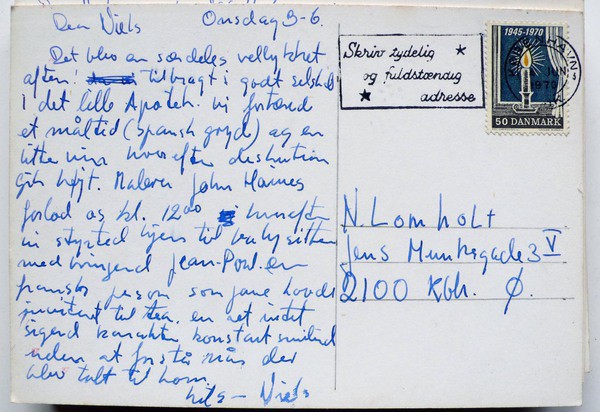 Dear Niels Onsdag 3-6.
Det blev en særdeles vellykket
aften! tilbragt i godt selskab
i det lille Apotek. vi fortæred
et måltid (spansk gryde) og en
litte vin hvorefter
gik højt. Maleren John Haines
forlod os kl. 12⁰⁰ hvorefter
vi styrted hjem til
medbringend Jean-Poul. en
fransk person som jane havde
inviteret til tea. en
sigend karakter konstant smilend
uden at forstå når der
blev talt til ham.
hils – Niels
Skriv tydelig
og fuldstændig
adresse
1945-1970
KØBENHAVN
JUN.
1970
50 DANMARK
N. Lomholt
Jens Munksgade 3 V
2100 Kbh. Ø.